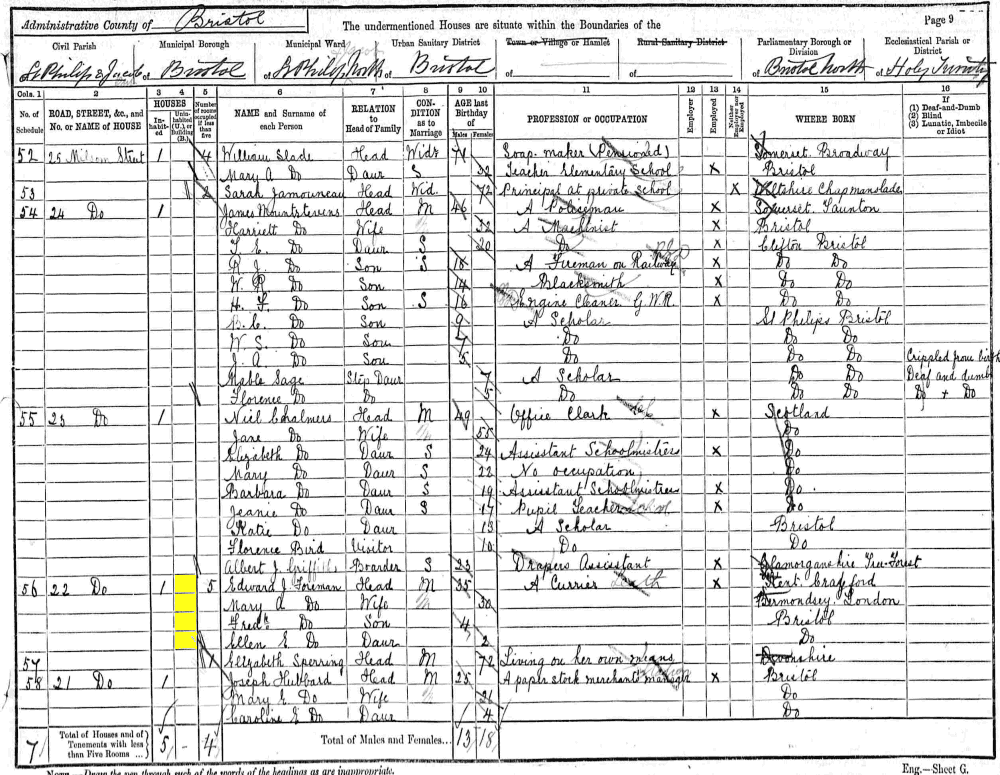 Administrative County of Bristol The undermentioned Houses are situate within the Boundaries of the Page 9
Civil Parish Municipal Borough Municipal Ward Urban Sanitary District Town or Village or Hamlet Rural Sanitary District Parliamentary Borough or Division Ecclesiastical Parish or District
St Philip & Jacob of Bristol of St Philip North of Bristol of of of Bristol North of Holy Trinity
Cols. 1 2 3 4 5 6 7 8 9 10 11 12 13 14 15 16
No. of Schedule ROAD, STREET, &c., and No. or NAME of HOUSE HOUSES Inhabited Uninhabited (U.) or Building (B.) Number of rooms occupied if less than five NAME and Surname of each Person RELATION to Head of Family CONDITION as to Marriage AGE last Birthday of Males Females PROFESSION or OCCUPATION Employer Employed Neither Employer nor Employed WHERE BORN If (1) Deaf-and-Dumb (2) Blind (3) Lunatic, Imbecile or Idiot
52 25 Milson Street 1 4 William Slade Head Widr 71 Soap maker (Pensioned) Somerset Broadway
Mary A Do Daur S 32 Teacher Elementary School X Bristol
53 2 Sarah Jamouneau Head Wid. 72 Principal at private school X Wiltshire Chapmanslade
54 24 Do 1 James Mountstevens Head M 46 A Policeman X Somerset Taunton
Harriett Do Wife 32 A Machinist X Bristol
T. E. Do Daur S 20 Do X Clifton Bristol
R J. Do Son S 18 A Fireman on Railway X Do Do
W. R Do Son 14 Blacksmith X Do Do
H. F. Do Son S 16 Engine Cleaner G.W.R. X Do Do
B. C. Do Son 9 A Scholar St Philips Bristol
W S. Do Son 7 Do Do Do
J. A Do Son 5 Do Do Do Crippled from birth
Mable Sage Step Daur 7 A Scholar Do Do Deaf and dumb
Florence Do Do 5 Do Do Do Do + Do
55 23 Do 1 Niel Chalmers Head M 49 Office Clark X Scotland
Jane Do Wife 55 Do
Elizabeth Do Daur S 24 Assisstant Schoolmistress X Do
Mary Do Daur S 22 No occupation Do
Barbara Do Daur S 19 Assisstant Schoolmistress X Do
Jeanie Do Daur S 17 Pupil Teacher X Do
Katie Do Daur 13 A Scholar Bristol
Florence Bird Visitor 10 Do Do
Albert J. Griffiths Boarder S 23 Drapers Assistant X Glamorganshire Tree-Forest
56 22 Do 1 5 Edward J Foreman Head M 35 A Currier X Kent Crayford
Mary A Do Wife 30 Bermondsey London
Fredk Do Son 4 Bristol
Ellen E Do Daur 2 Do
57 Elizabeth Sperring Head M 72 Living on her own means Devonshire
58 21 Do 1 Joseph Hubbard Head M 25 A paper stock merchants manager X Bristol
Mary E Do Wife 21 Do
Caroline E Do Daur 4 Do
7 Total of Houses and of Tenements with less than Five Rooms ... 5 - 4 Total of Males and Females... 13 18
NOTE.—Draw the pen through such of the words of the headings as are inappropriate. Eng.—Sheet G.